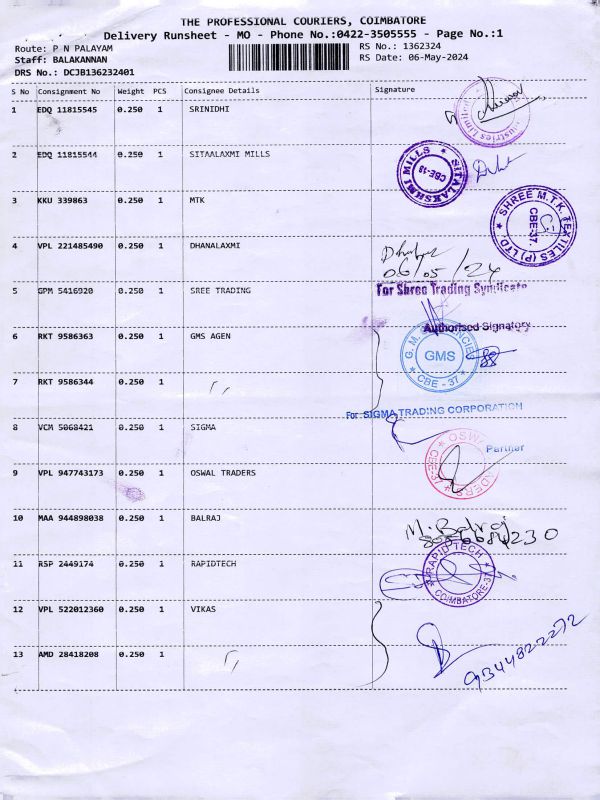 THE PROFESSIONAL COURIERS, COIMBATORE
Delivery Runsheet - MO - Phone No.:0422-3505555 - Page No.:1
Route: P N PALAYAM
RS No.: 1362324
Staff: BALAKANNAN
RS Date: 06-May-2024
DRS No.: DCJB136232401
S No Consignment No Weight PCS Consignee Details Signature
1 EDQ 11815545 0.250 1 SRINIDHI
2 EDQ 11815544 0.250 1 SITAALAXMI MILLS
SITALAKSHMI MILLS
CBE-18
3 KKU 339863 0.250 1 MTK
SHREE M.T.K. TEXTILES (P) LTD
CBE-37.
4 VPL 221485490 0.250 1 DHANALAXMI
06/05/24
5 GPM 5416920 0.250 1 SREE TRADING
For Shree Trading Syndicate
Authorised Signatory
6 RKT 9586363 0.250 1 GMS AGEN
GMS
CBE - 37
7 RKT 9586344 0.250 1 ,,
For SIGMA TRADING CORPORATION
8 VCM 5068421 0.250 1 SIGMA
Partner
9 VPL 947743173 0.250 1 OSWAL TRADERS
10 MAA 944898038 0.250 1 BALRAJ
M. Balraj
11 RSP 2449174 0.250 1 RAPIDTECH
RAPID TECH
COIMBATORE-37
12 VPL 522012360 0.250 1 VIKAS
9344822272
13 AMD 28418208 0.250 1 ,,